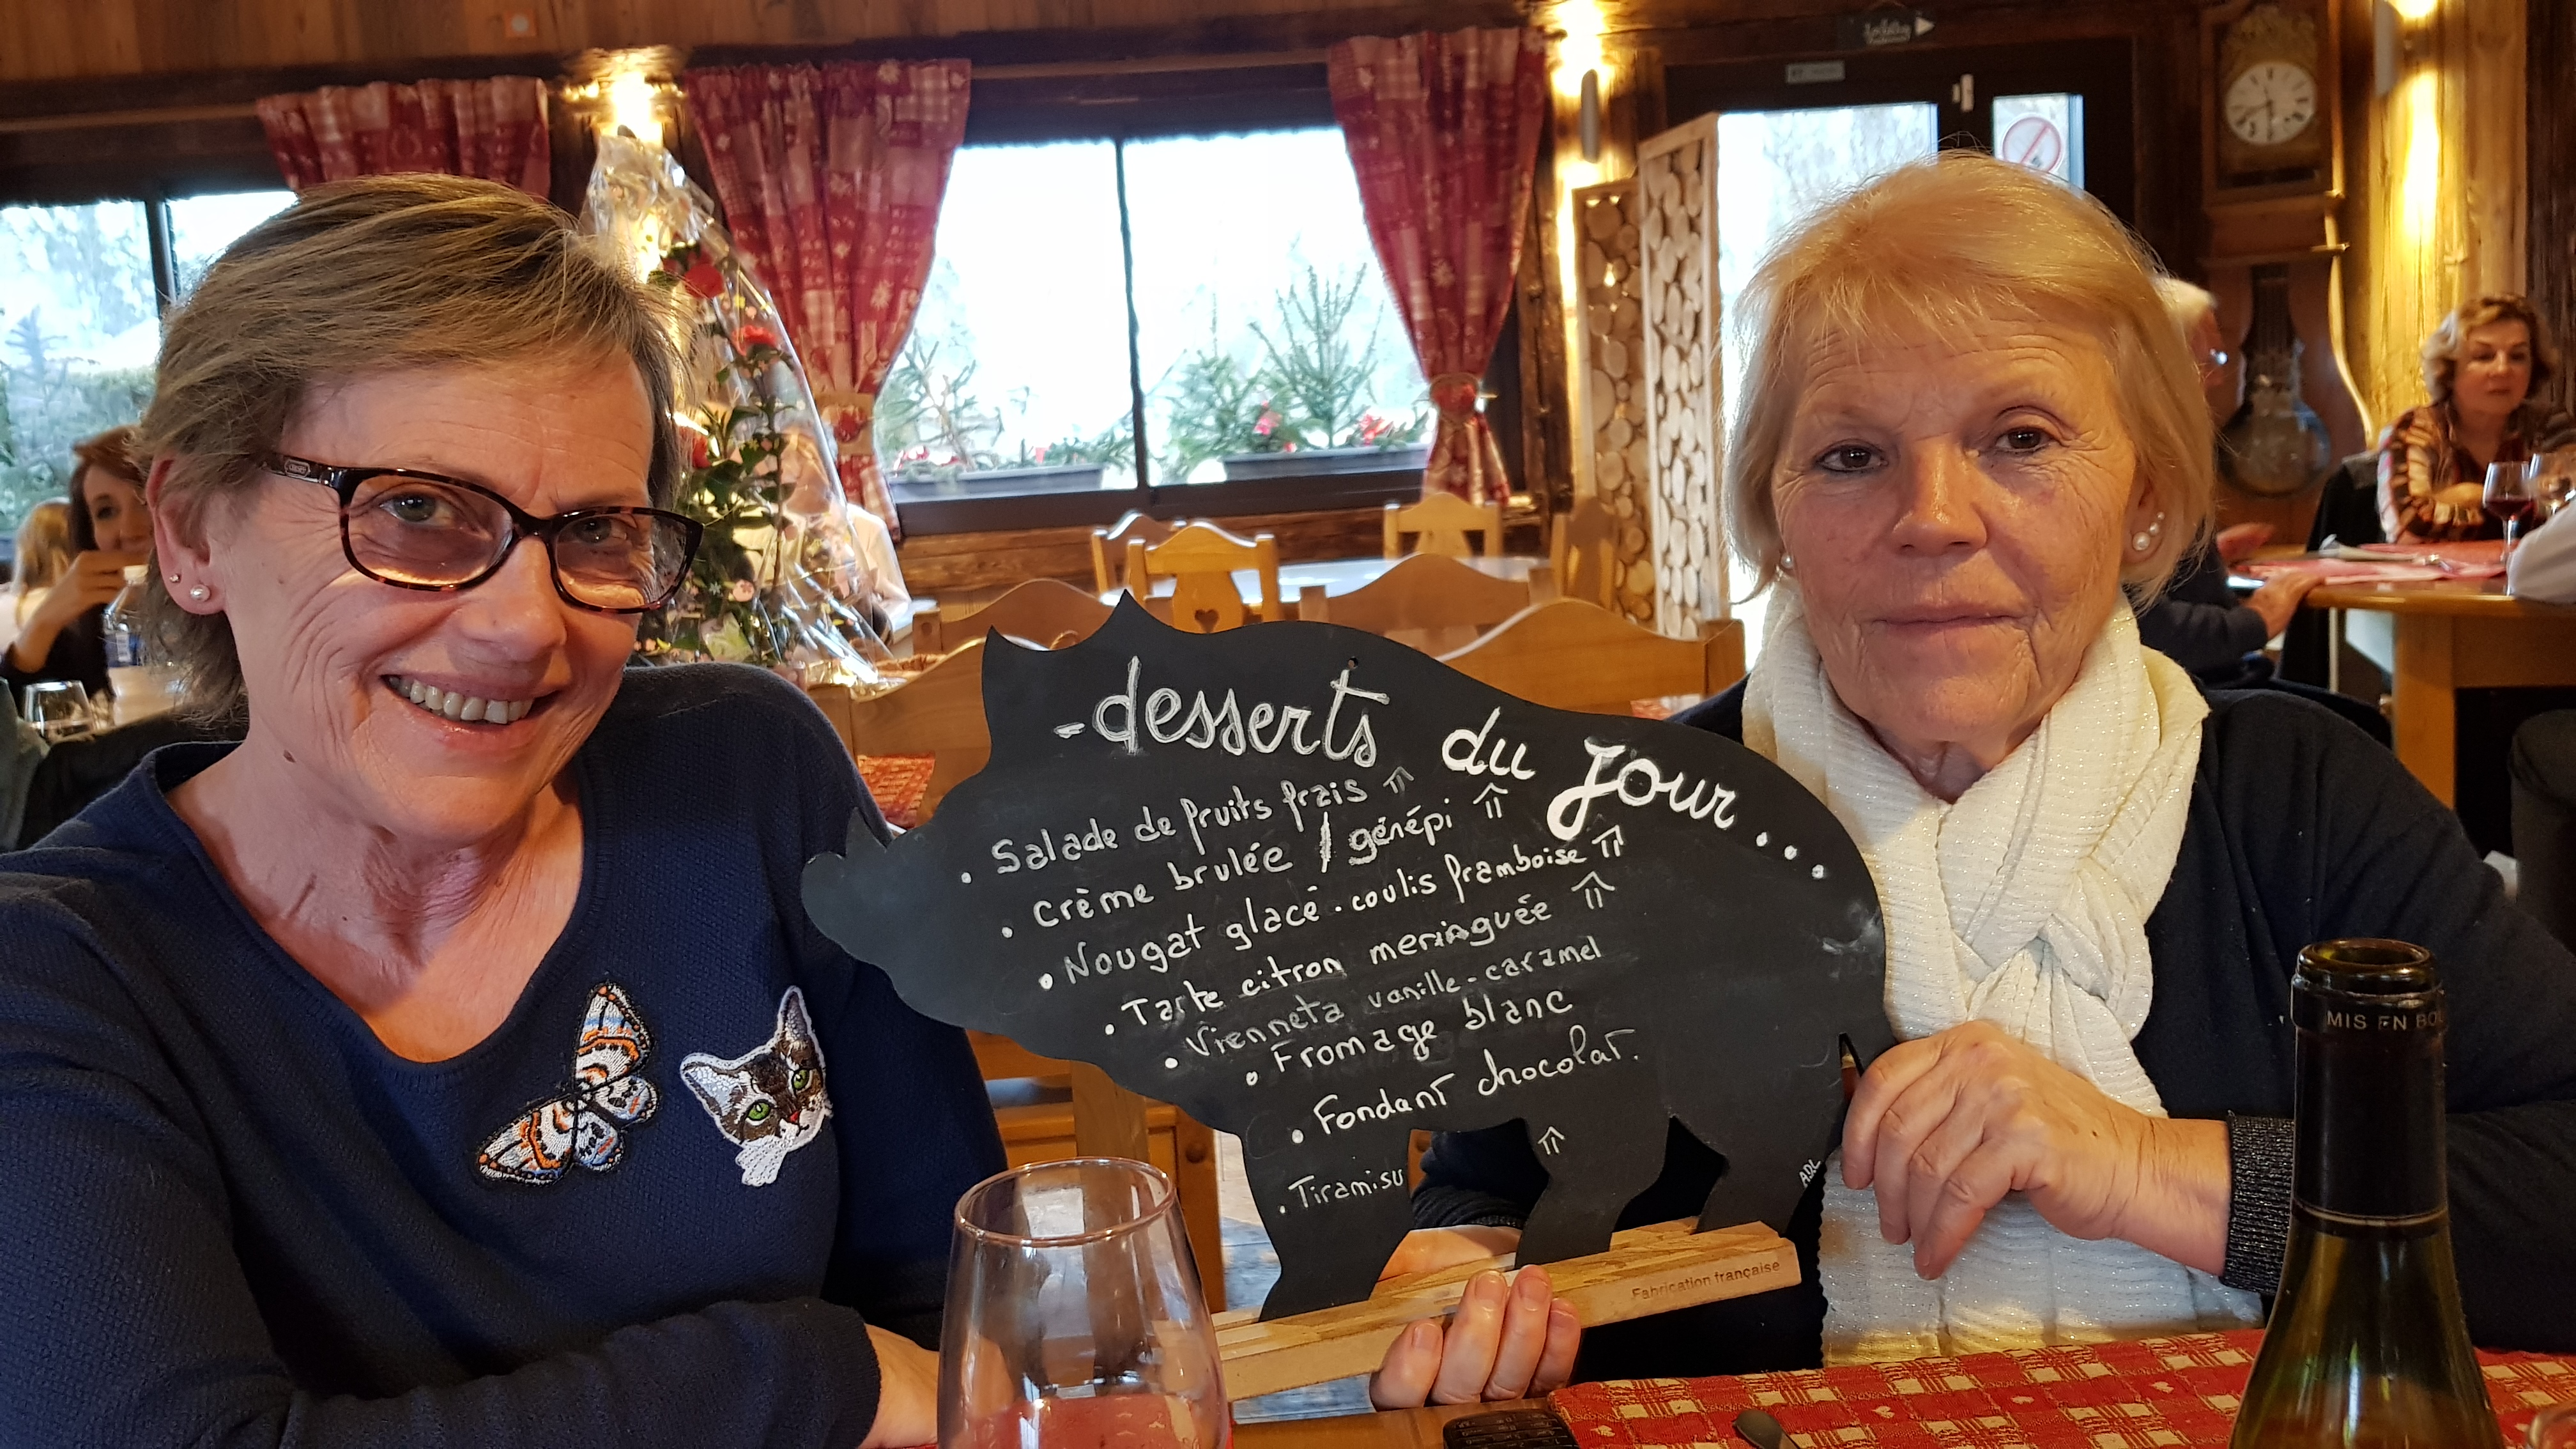 - desserts du jour...
• Salade de fruits frais
• crème brulée / génépi
• Nougat glacé. coulis framboise
• Tarte citron meringuée
• Vienneta vanille-caramel
• Fromage blanc
• Fondant chocolat.
• Tiramisu
ADL
Fabrication française
MIS EN BOU